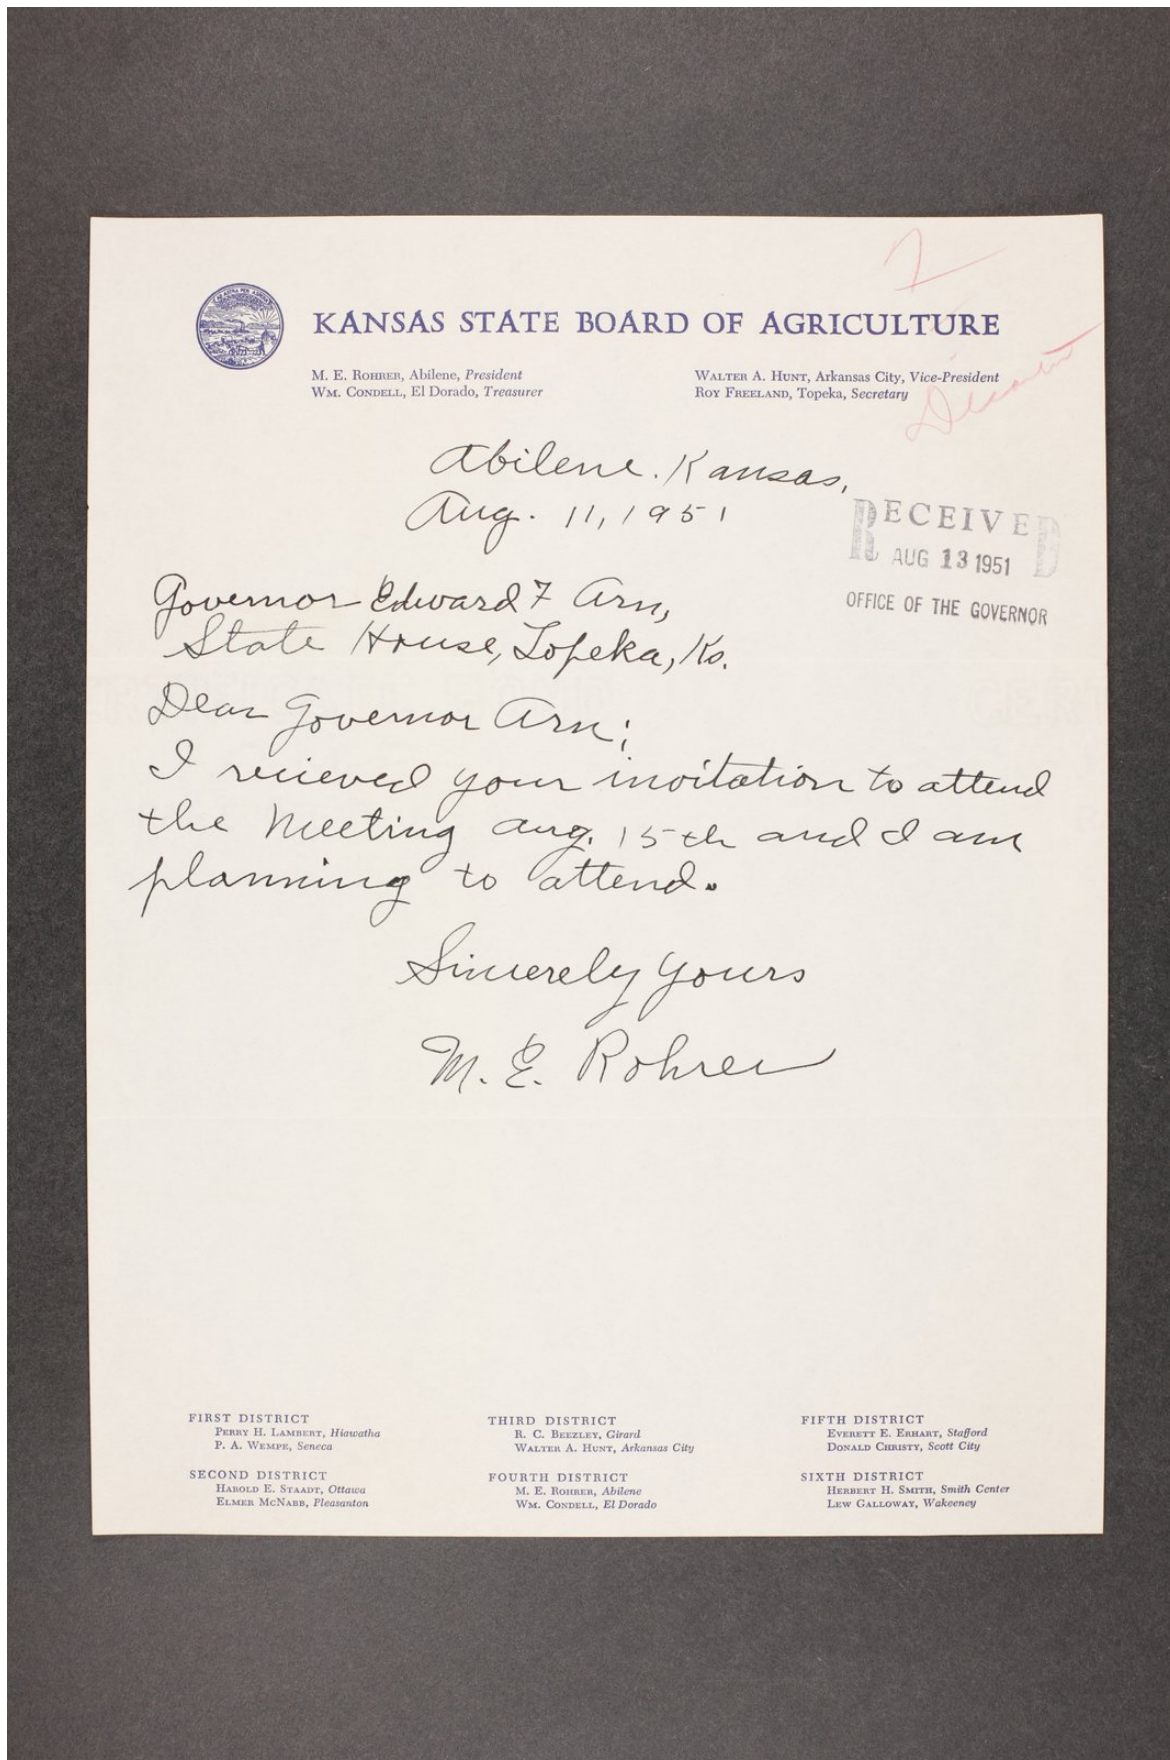 KANSAS STATE BOARD OF AGRICULTURE
M. E. ROHRER, Abilene, President
WM. CONDELL, El Dorado, Treasurer
WALTER A. HUNT, Arkansas City, Vice-President
ROY FREELAND, Topeka, Secretary
Abilene. Kansas,
Aug. 11, 1951
RECEIVED
AUG 13 1951
OFFICE OF THE GOVERNOR
Governor Edward F Arn,
State House, Topeka, Ks.
Dear Governor Arn;
I recieved your invitation to attend
the Meeting Aug. 15th and I am
planning to attend.
Sincerely Yours
M. E. Rohrer
FIRST DISTRICT
PERRY H. LAMBERT, Hiawatha
P. A. WEMPE, Seneca
SECOND DISTRICT
HAROLD E. STAADT, Ottawa
ELMER MCNABB, Pleasanton
THIRD DISTRICT
R. C. BEEZLEY, Girard
WALTER A. HUNT, Arkansas City
FOURTH DISTRICT
M. E. ROHRER, Abilene
WM. CONDELL, El Dorado
FIFTH DISTRICT
EVERETT E. ERHART, Stafford
DONALD CHRISTY, Scott City
SIXTH DISTRICT
HERBERT H. SMITH, Smith Center
LEW GALLOWAY, Wakeeney